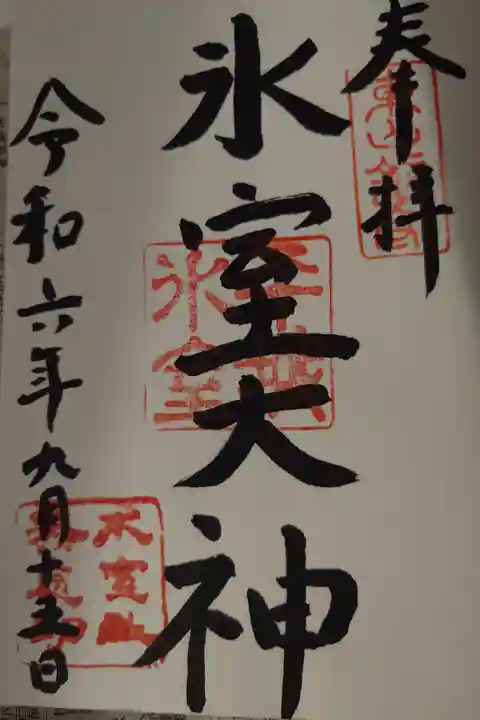 奉拝
氷室大神
令和六年九月十五日